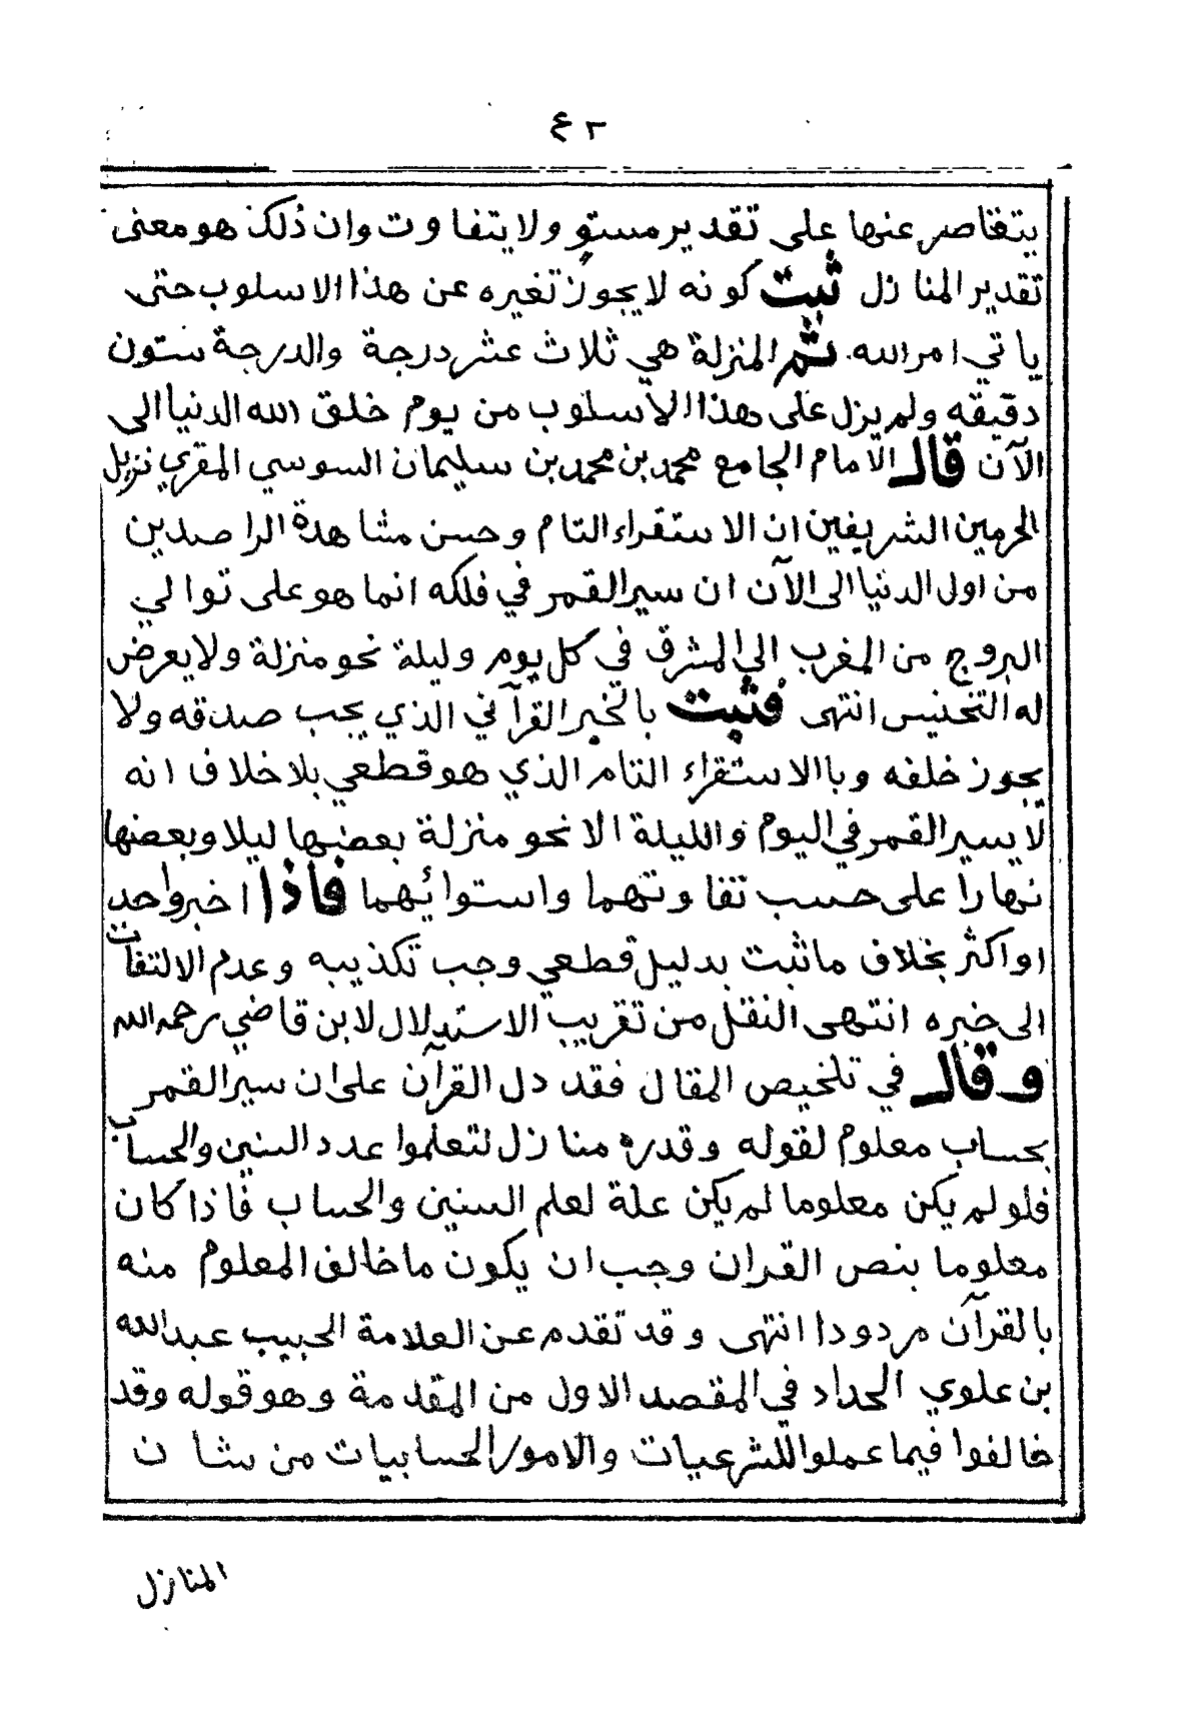 ٤٣
يتقاصر عنها على تقدير مستو ولا يتفاوت وان ذلك هو معنى
تقدير المنازل ثبت كونه لا يجوز تغيره عن هذا الاسلوب حتى
ياتي امر الله. ثم المنزلة هي ثلاث عشر درجة والدرجة ستون
دقيقه ولم يزل على هذا الاسلوب من يوم خلق الله الدنيا الى
الآن قال الامام الجامع محمد بن محمد بن سليمان السوسي المقري نزيل
الحرمين الشريفين ان الاستقراء التام وحسن مشاهدة الراصدين
من اول الدنيا الى الآن ان سير القمر في فلكه انما هو على توالي
البروج من المغرب الى المشرق في كل يوم وليلة نحو منزلة ولا يعرض
له التخنيس انتهى فثبت بالخبر القرآني الذي يجب صدقه ولا
يجوز خلفه وباالاستقراء التام الذي هو قطعي بلا خلاف انه
لا يسير القمر في اليوم والليلة الا نحو منزلة بعضها ليلا وبعضها
نهارا على حسب تفاوتهما واستوائهما فاذا اخبر واحد
او اكثر بخلاف ما ثبت بدليل قطعي وجب تكذيبه وعدم الالتفات
الى خبره انتهى النقل من تقريب الاستدلال لابن قاضي رحمه الله
وقال في تلخيص المقال فقد دل القرآن على ان سير القمر
بحساب معلوم لقوله وقدره منازل لتعلموا عدد السنين والحساب
فلو لم يكن معلوما لم يكن علة لعلم السنين والحساب فاذا كان
معلوما بنص القران وجب ان يكون ما خالف المعلوم منه
بالقرآن مردودا انتهى وقد تقدم عن العلامة الحبيب عبد الله
بن علوي الحداد في المقصد الاول من المقدمة وهو قوله وقد
خالفوا فيما عملوا الشرعيات والامور الحسابيات من شان
المنازل